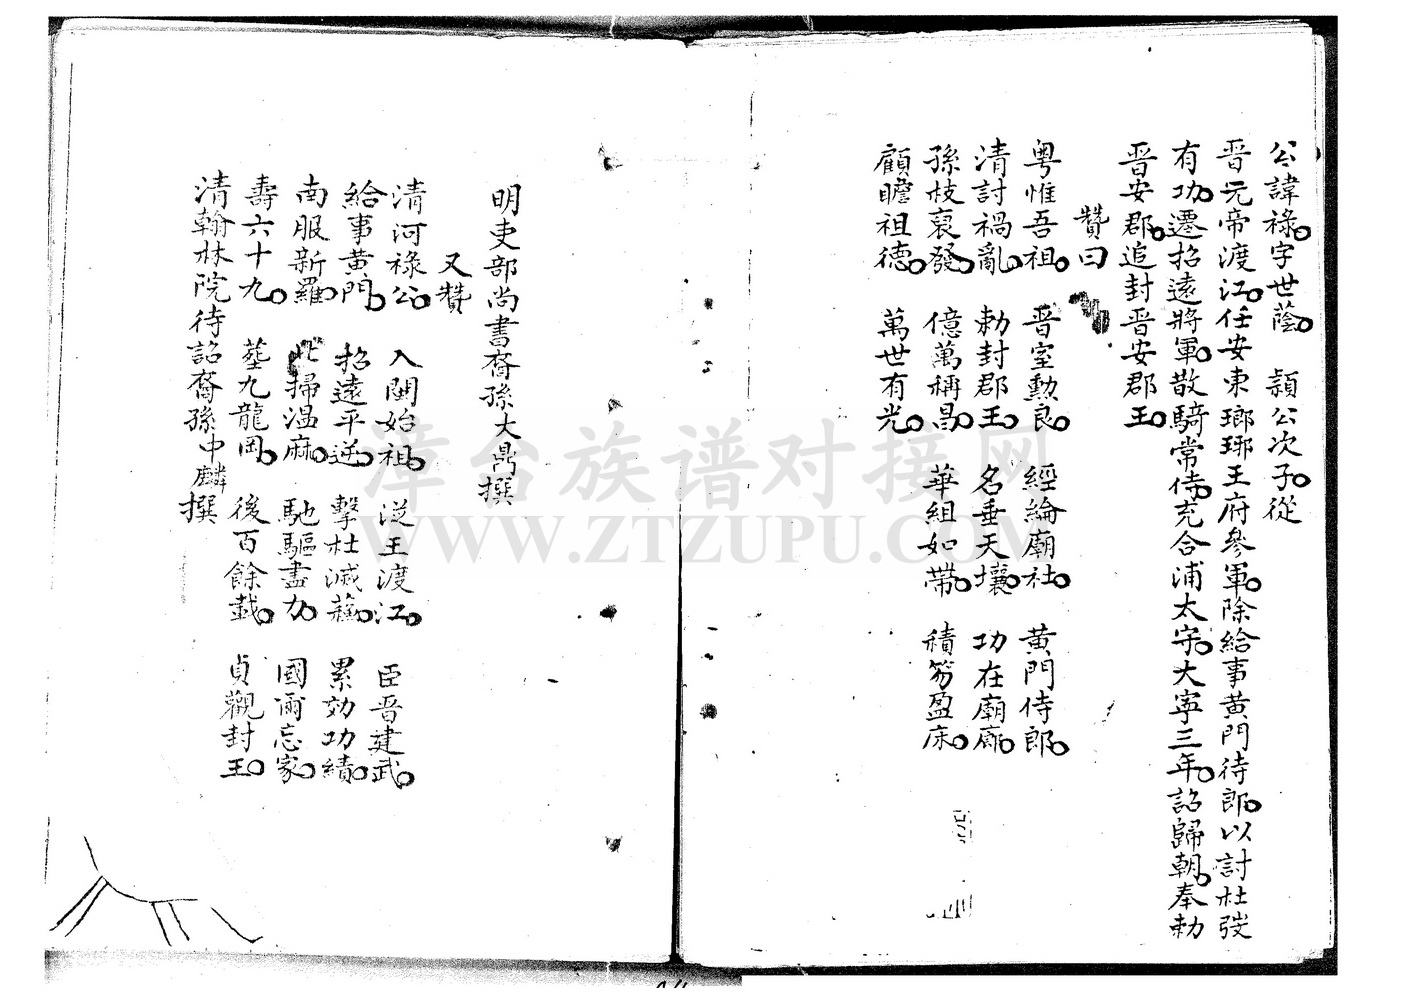 公諱祿。字世蔭。 頴公次子。從
晋元帝渡江。任安東瑯琊王府參軍。除給事黃門待郎。以討杜弢
有功。遷招遠將軍。散騎常侍。充合浦太守。大寧三年。詔歸朝。奉勅
晋安郡。追封晋安郡王。
贊曰
粤惟吾祖。 晋室勳良。 經綸廟社。 黃門侍郎。
清討禍亂。 勅封郡王。 名垂天壤。 功在廟廊。
孫枝裒發。 億萬稱昌。 華組如帶。 積笏盈床。
顧瞻祖德。 萬世有光。
明吏部尚書裔孫大鼎撰
又贊
清河祿公。 入閩始祖。 從王渡江。 臣晋建武。
給事黃門。 招遠平逆。 擊杜滅蘓。 累効功績。
南服新羅。 北掃溫麻。 馳驅盡力。 國爾忘家。
壽六十九。 塟九龍岡。 後百餘載。 貞觀封王。
清翰林院待詔裔孫中麟撰
漳台族谱对接网
WWW.ZTZUPU.COM